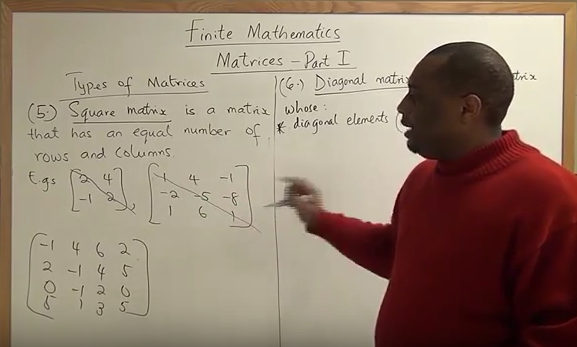 Finite Mathematics
Matrices - Part I
Types of Matrices
(5.) Square matrix is a matrix
that has an equal number of
rows and columns.
E.gs [2 4
-1 2],
[-1 4 -1
-2 -5 -8
1 6 1]
[-1 4 6 2
2 -1 4 5
0 -1 2 0
5 1 3 5]
(6.) Diagonal matrix
whose:
* diagonal elements (